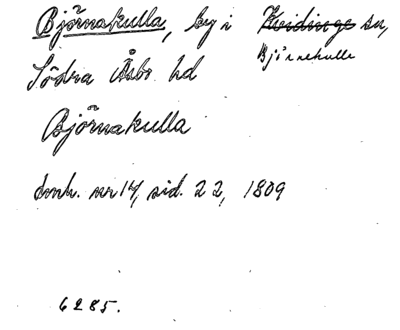 Björnakulla, by i Kvidinge sn,
Björnekulle
Södra Åsbo hd
Björnakulla
smh. nr 14, sid. 22, 1809
6285.